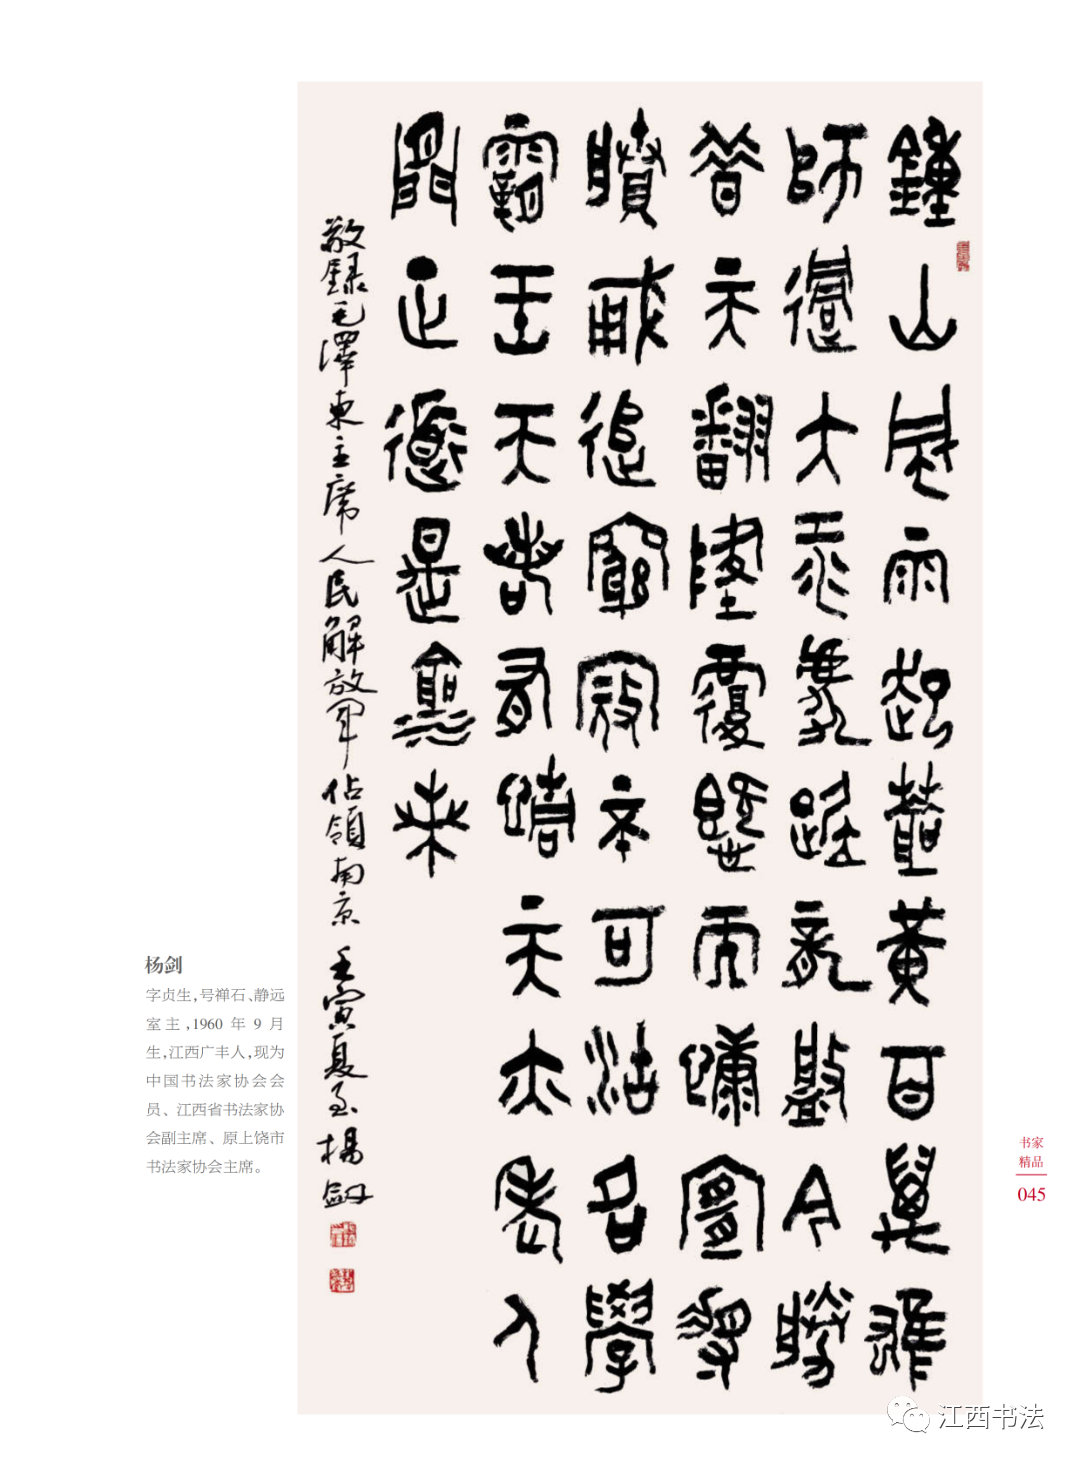 鍾山風雨起蒼黃百萬雄
師過大江虎踞龍盤今勝
昔天翻地覆慨而慷宜將
賸勇追窮寇不可沽名學
霸王天若有情天亦老人
間正道是滄桑
敬録毛澤東主席人民解放軍佔領南京 壬寅夏至 楊劍
杨剑
字贞生,号禅石、静远
室主,1960 年 9 月
生,江西广丰人,现为
中国书法家协会会
员、江西省书法家协
会副主席、原上饶市
书法家协会主席。
书家
精品
045
江西书法